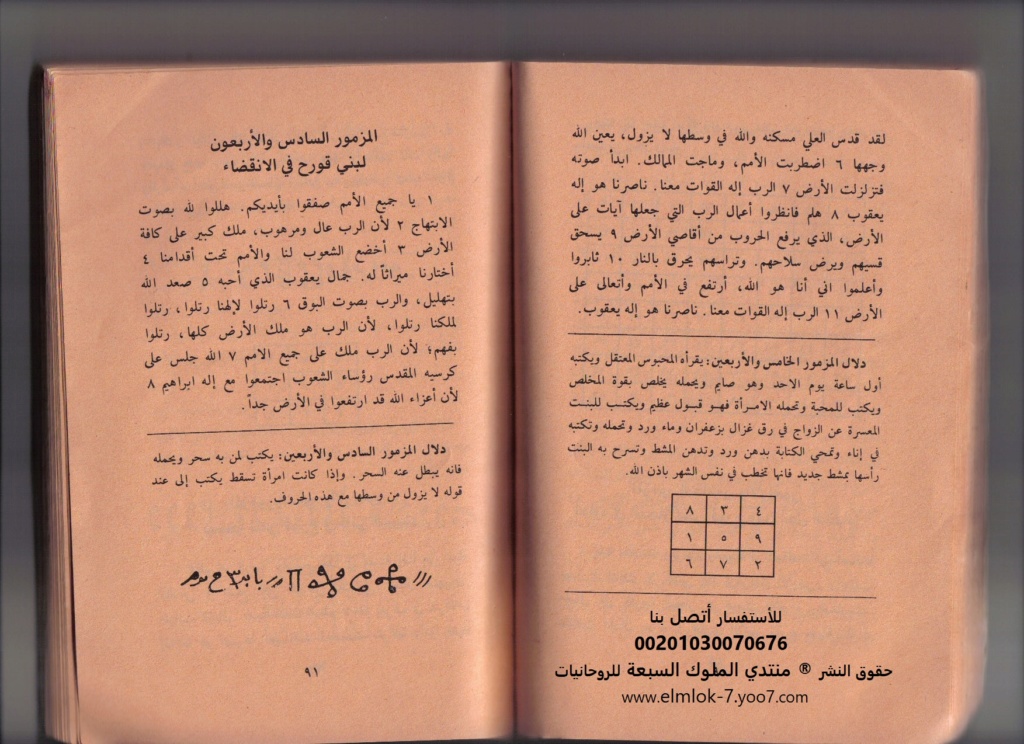 لقد قدس العلي مسكنه والله في وسطها لا يزول، يعين الله
وجهها ٦ اضطربت الأمم، وماجت الممالك. ابدأ صوته
فتزلزلت الأرض ٧ الرب إله القوات معنا. ناصرنا هو إله
يعقوب ٨ هلم فانظروا أعمال الرب التي جعلها آيات على
الأرض، الذي يرفع الحروب من أقاصي الأرض ٩ يسحق
قسيهم ويرض سلاحهم. وتراسهم يحرق بالنار ١٠ ثابروا
وأعلموا اني أنا هو الله، أرتفع في الأمم وأتعالى على
الأرض ١١ الرب إله القوات معنا. ناصرنا هو إله يعقوب.
دلال المزمور الخامس والأربعين: يقرأه المحبوس المعتقل ويكتبه
أول ساعة يوم الاحد وهو صايم ويحمله يخلص بقوة المخلص
ويكتب للمحبة وتحمله الامرأة فهو قبول عظيم ويكتب للبنت
المعسرة عن الزواج في رق غزال بزعفران وماء ورد وتحمله وتكتبه
في إناء وتمحي الكتابة بدهن ورد وتدهن المشط وتسرح به البنت
رأسها بمشط جديد فانها تخطب في نفس الشهر باذن الله.
٤ ٣ ٨
٩ ٥ ١
٢ ٧ ٦
للأستفسار أتصل بنا
00201030070676
حقوق النشر ® منتدي الملوك السبعة للروحانيات
www.elmlok-7.yoo7.com
المزمور السادس والأربعون
لبني قورح في الانقضاء
١ يا جميع الأمم صفقوا بأيديكم. هللوا لله بصوت
الابتهاج ٢ لأن الرب عال ومرهوب، ملك كبير على كافة
الأرض ٣ أخضع الشعوب لنا والأمم تحت أقدامنا ٤
أختارنا ميراثاً له. جمال يعقوب الذي أحبه ٥ صعد الله
بتهليل، والرب بصوت البوق ٦ رتلوا لإلهنا رتلوا، رتلوا
لملكنا رتلوا، لأن الرب هو ملك الأرض كلها، رتلوا
بفهم؛ لأن الرب ملك على جميع الامم ٧ الله جلس على
كرسيه المقدس رؤساء الشعوب اجتمعوا مع إله ابراهيم ٨
لأن أعزاء الله قد ارتفعوا في الأرض جداً.
دلال المزمور السادس والأربعين: يكتب لمن به سحر ويحمله
فانه يبطل عنه السحر. وإذا كانت امرأة تسقط يكتب إلى عند
قوله لا يزول من وسطها مع هذه الحروف.
٩١